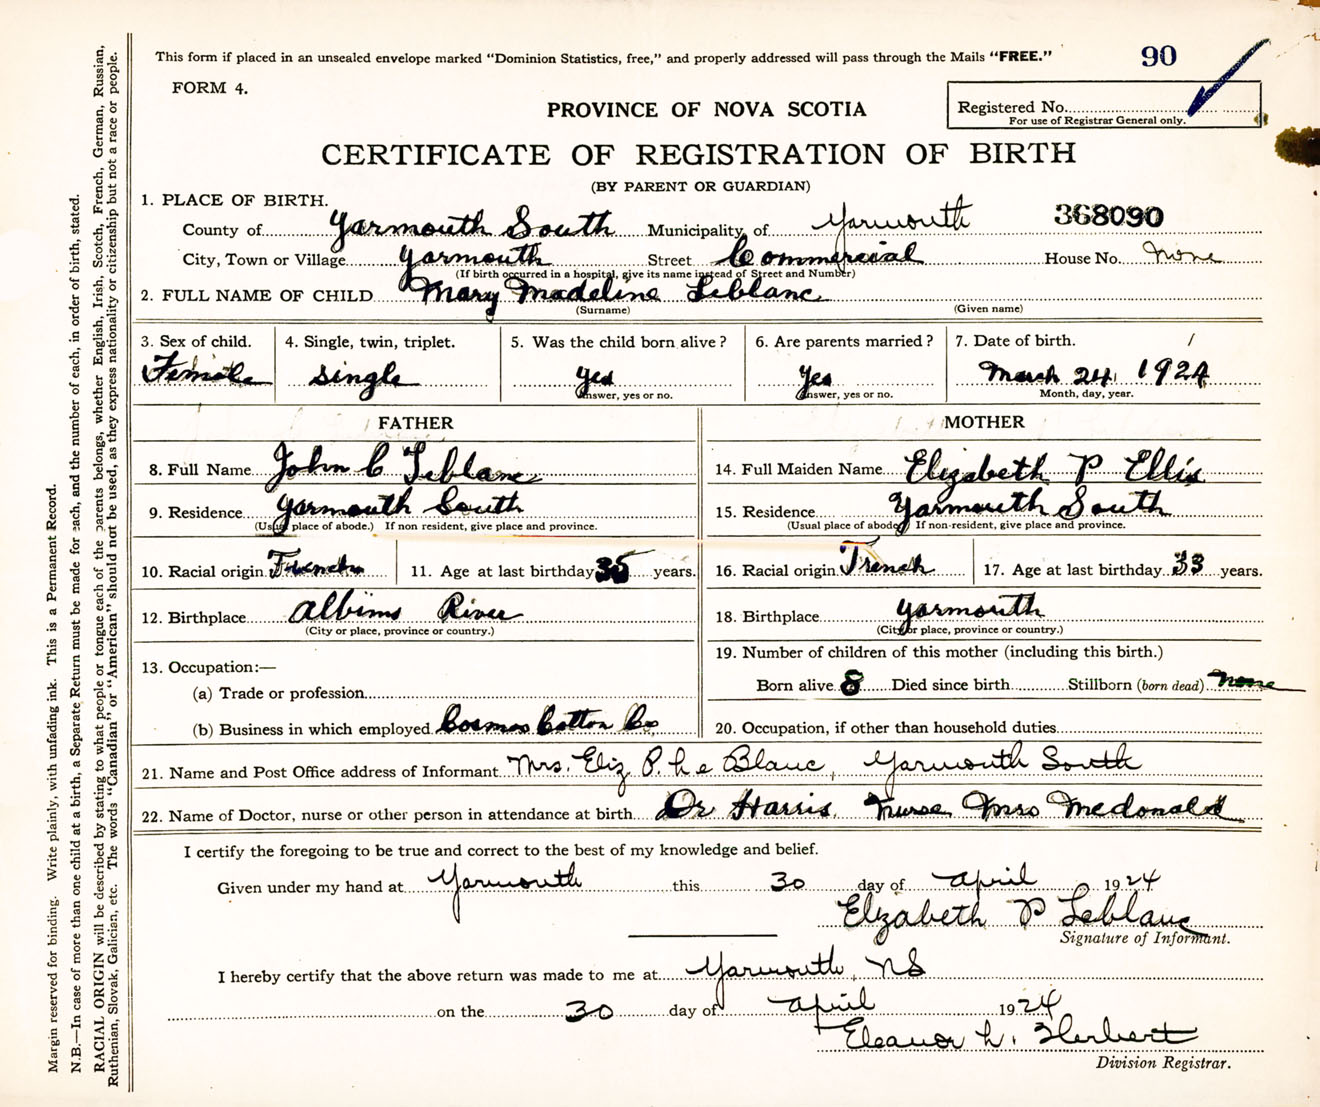 This form if placed in an unsealed envelope marked "Dominion Statistics, free," and properly addressed will pass through the Mails "FREE."
90
FORM 4.
PROVINCE OF NOVA SCOTIA
Registered No.
For use of Registrar General only.
CERTIFICATE OF REGISTRATION OF BIRTH
(BY PARENT OR GUARDIAN)
1. PLACE OF BIRTH.
368090
County of Yarmouth South Municipality of Yarmouth
City, Town or Village Yarmouth Street Commercial House No. None
(If birth occurred in a hospital, give its name instead of Street and Number)
2. FULL NAME OF CHILD Mary Madeline Leblanc
(Surname) (Given name)
3. Sex of child. 4. Single, twin, triplet. 5. Was the child born alive? 6. Are parents married? 7. Date of birth.
Female single yes yes March 24 1924
Answer, yes or no. Answer, yes or no. Month, day, year.
FATHER MOTHER
8. Full Name John C Leblanc 14. Full Maiden Name Elizabeth P Ellis
9. Residence Yarmouth South 15. Residence Yarmouth South
(Usual place of abode.) If non resident, give place and province. (Usual place of abode) If non-resident, give place and province.
10. Racial origin French 11. Age at last birthday 35 years. 16. Racial origin French 17. Age at last birthday 33 years.
12. Birthplace River 18. Birthplace Yarmouth
(City or place, province or country.) (City or place, province or country.)
13. Occupation:— 19. Number of children of this mother (including this birth.)
(a) Trade or profession Born alive 8 Died since birth Stillborn (born dead) none
(b) Business in which employed Cosmos Cotton Co 20. Occupation, if other than household duties
21. Name and Post Office address of Informant Mrs. Eliz P. Le Blanc, Yarmouth South
22. Name of Doctor, nurse or other person in attendance at birth Dr Harris. Nurse Mrs Mcdonald
I certify the foregoing to be true and correct to the best of my knowledge and belief.
Given under my hand at Yarmouth this 30 day of April 1924
Elizabeth P Leblanc
Signature of Informant.
I hereby certify that the above return was made to me at Yarmouth, NS
on the 30 day of April 1924
Eleanor L. Herbert
Division Registrar.
Margin reserved for binding. Write plainly, with unfading ink. This is a Permanent Record.
N.B.—In case of more than one child at a birth, a Separate Return must be made for each, and the number of each, in order of birth, stated.
RACIAL ORIGIN will be described by stating to what people or tongue each of the parents belongs, whether English, Irish, Scotch, French, German, Russian,
Ruthenian, Slovak, Galician, etc. The words "Canadian" or "American" should not be used, as they express nationality or citizenship but not a race or people.